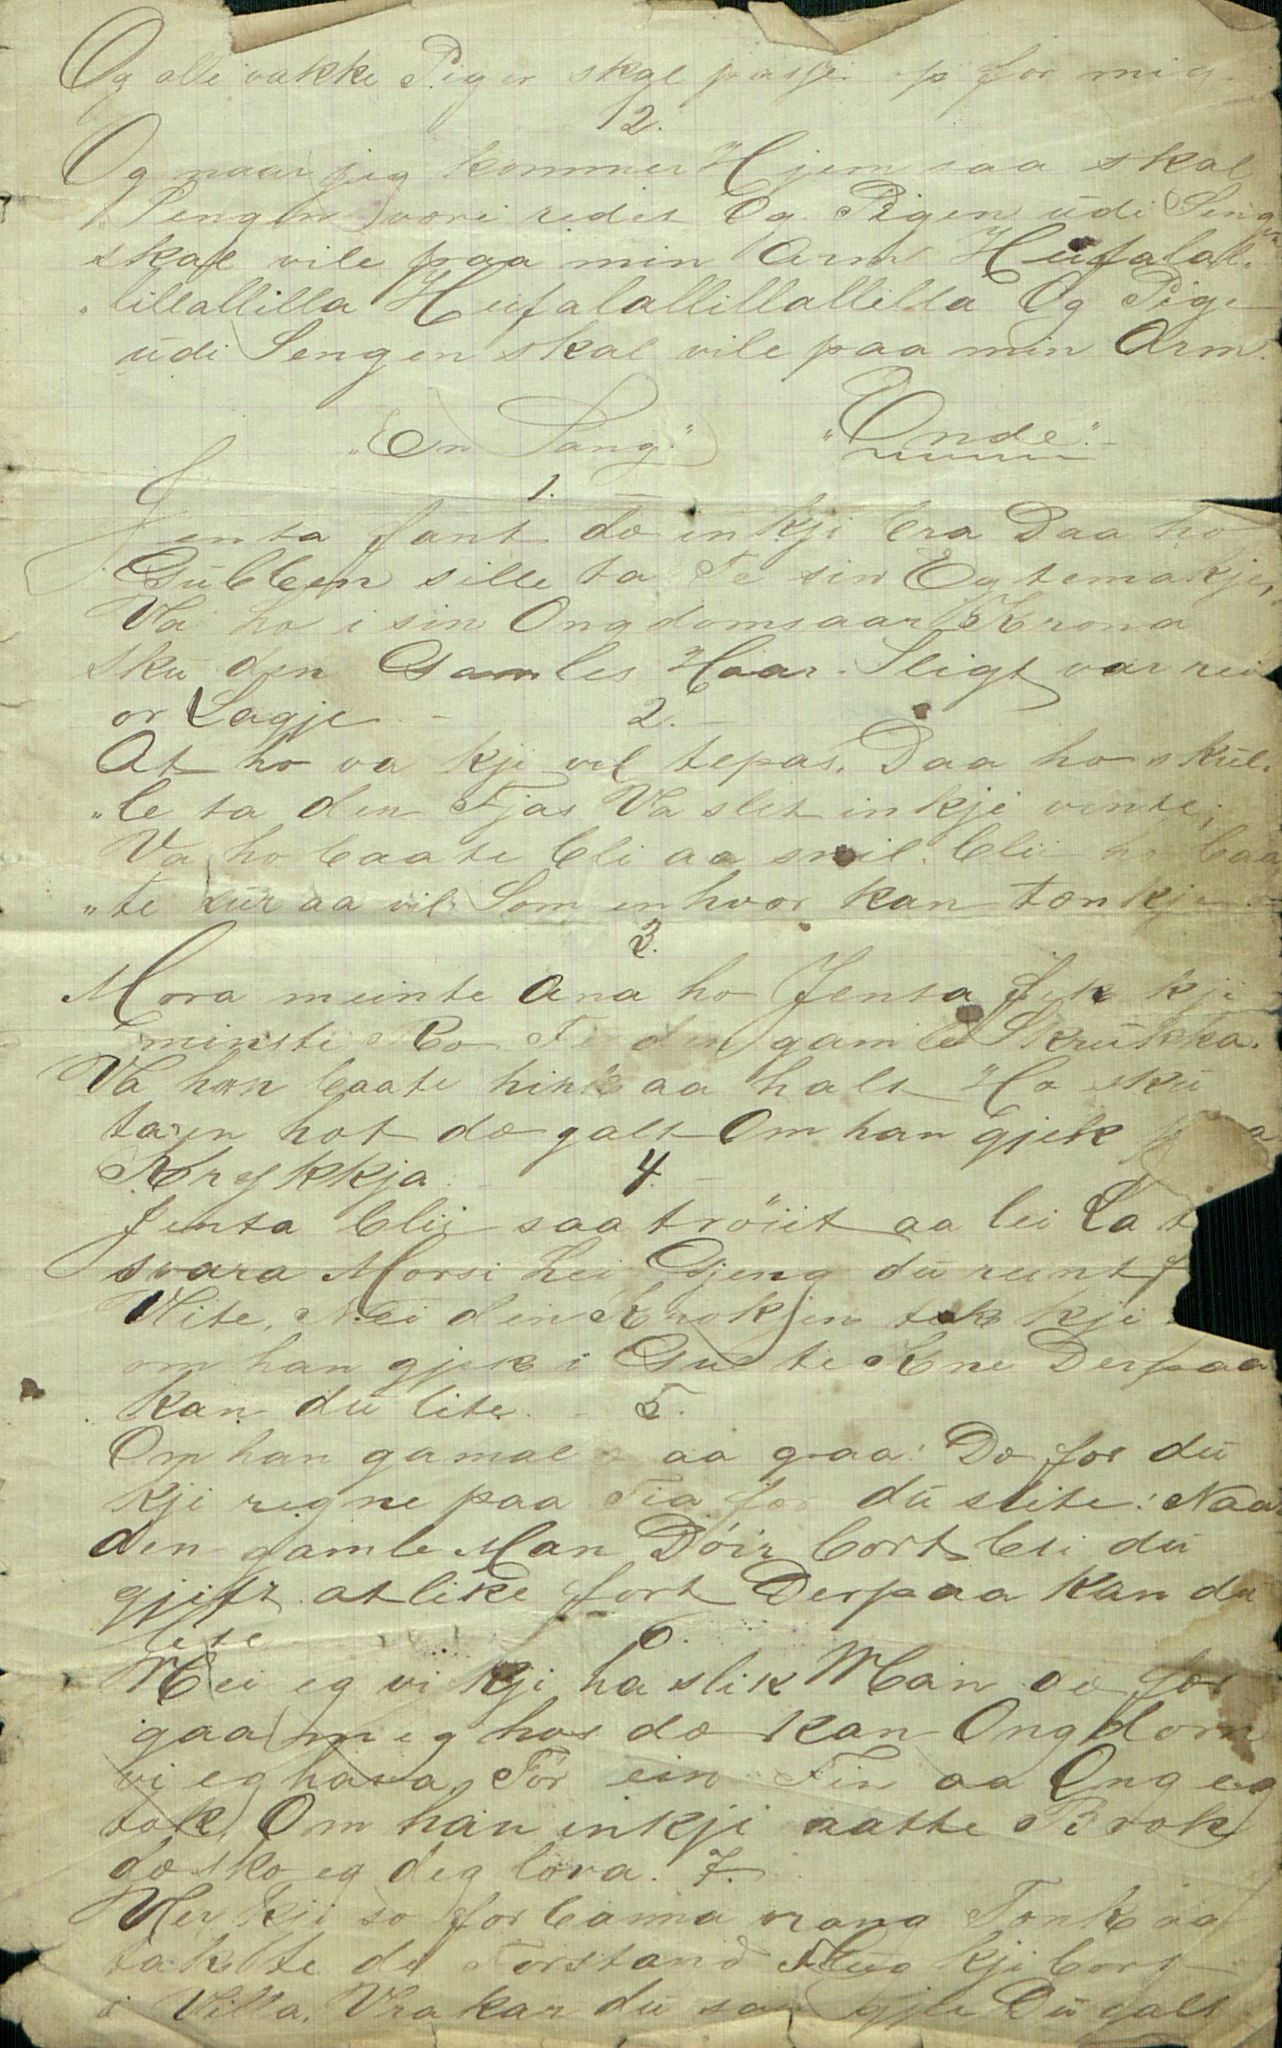 Og alle vakke Piger skal passe op for mig.
12.
Og naar jeg kommer Hjem saa skal
Sengen være redet Og Pigen udi Sengen
skal vile paa min Arm Heüfalal„
„lillallilla Heüfalallillallilla Og Pige
üdi Sengen skal vile paa min Arm.
„En Sang.” „Ende.”
1.
Jenta fant dæ inkji bra Daa ho
Gübben sille ta Te sin Egtemakje,
Va ho i sin Ongdomsaar Krona
skü den Gamles Haar. Sligt var rei
or Lagje. - 2. -
At ho va kji vel tepas. Daa ho skül„
„le ta den Fjas Va slet inkji vente;
Va ho baate bli aa snil. bli ho baa
„te sür aa vil Som enhvor kan tænkje
3.
Mora meinte Ana ho Jenta fek kji
minste Ro Te den gamle Skrükka.
Va han baate hink aa halt Ho skü
ta'en hot dæ galt Om han gjek
Krykkja. - 4. -
Jenta blii saa tröiit aa lei La
svara Morsi hei Gjeng du runt
Vite, Nei den Knokjen tek kji
om han gjek i Gul te Kne Derpaa
kan dü lite. - 5.
Om han gamal aa graa: Dæ for dü
kji regne paa Tia for dü slite: Naa
den gamle Man Döir bort bli dü
gjift atlike fort Derpaa kan dü
lite
6.
Nei eg vi kji ha slik Man dæ for
gaa meg hos dæ kan Ongdom
vi eg hava, För ein Fin aa Ong eg
tok, Om han inkji aatte Brok
dæ sko eg deg lova. 7.
Ver kji so forbanna vrang Tenk aa
tak te de Forstand Flüg kji bort
i Villa. Vrakar dü sa gjle Dü galt